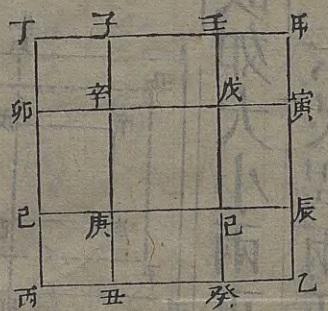 丁 子 壬 甲
卯 辛 戊 寅
巳 庚 己 辰
丙 丑 癸 乙